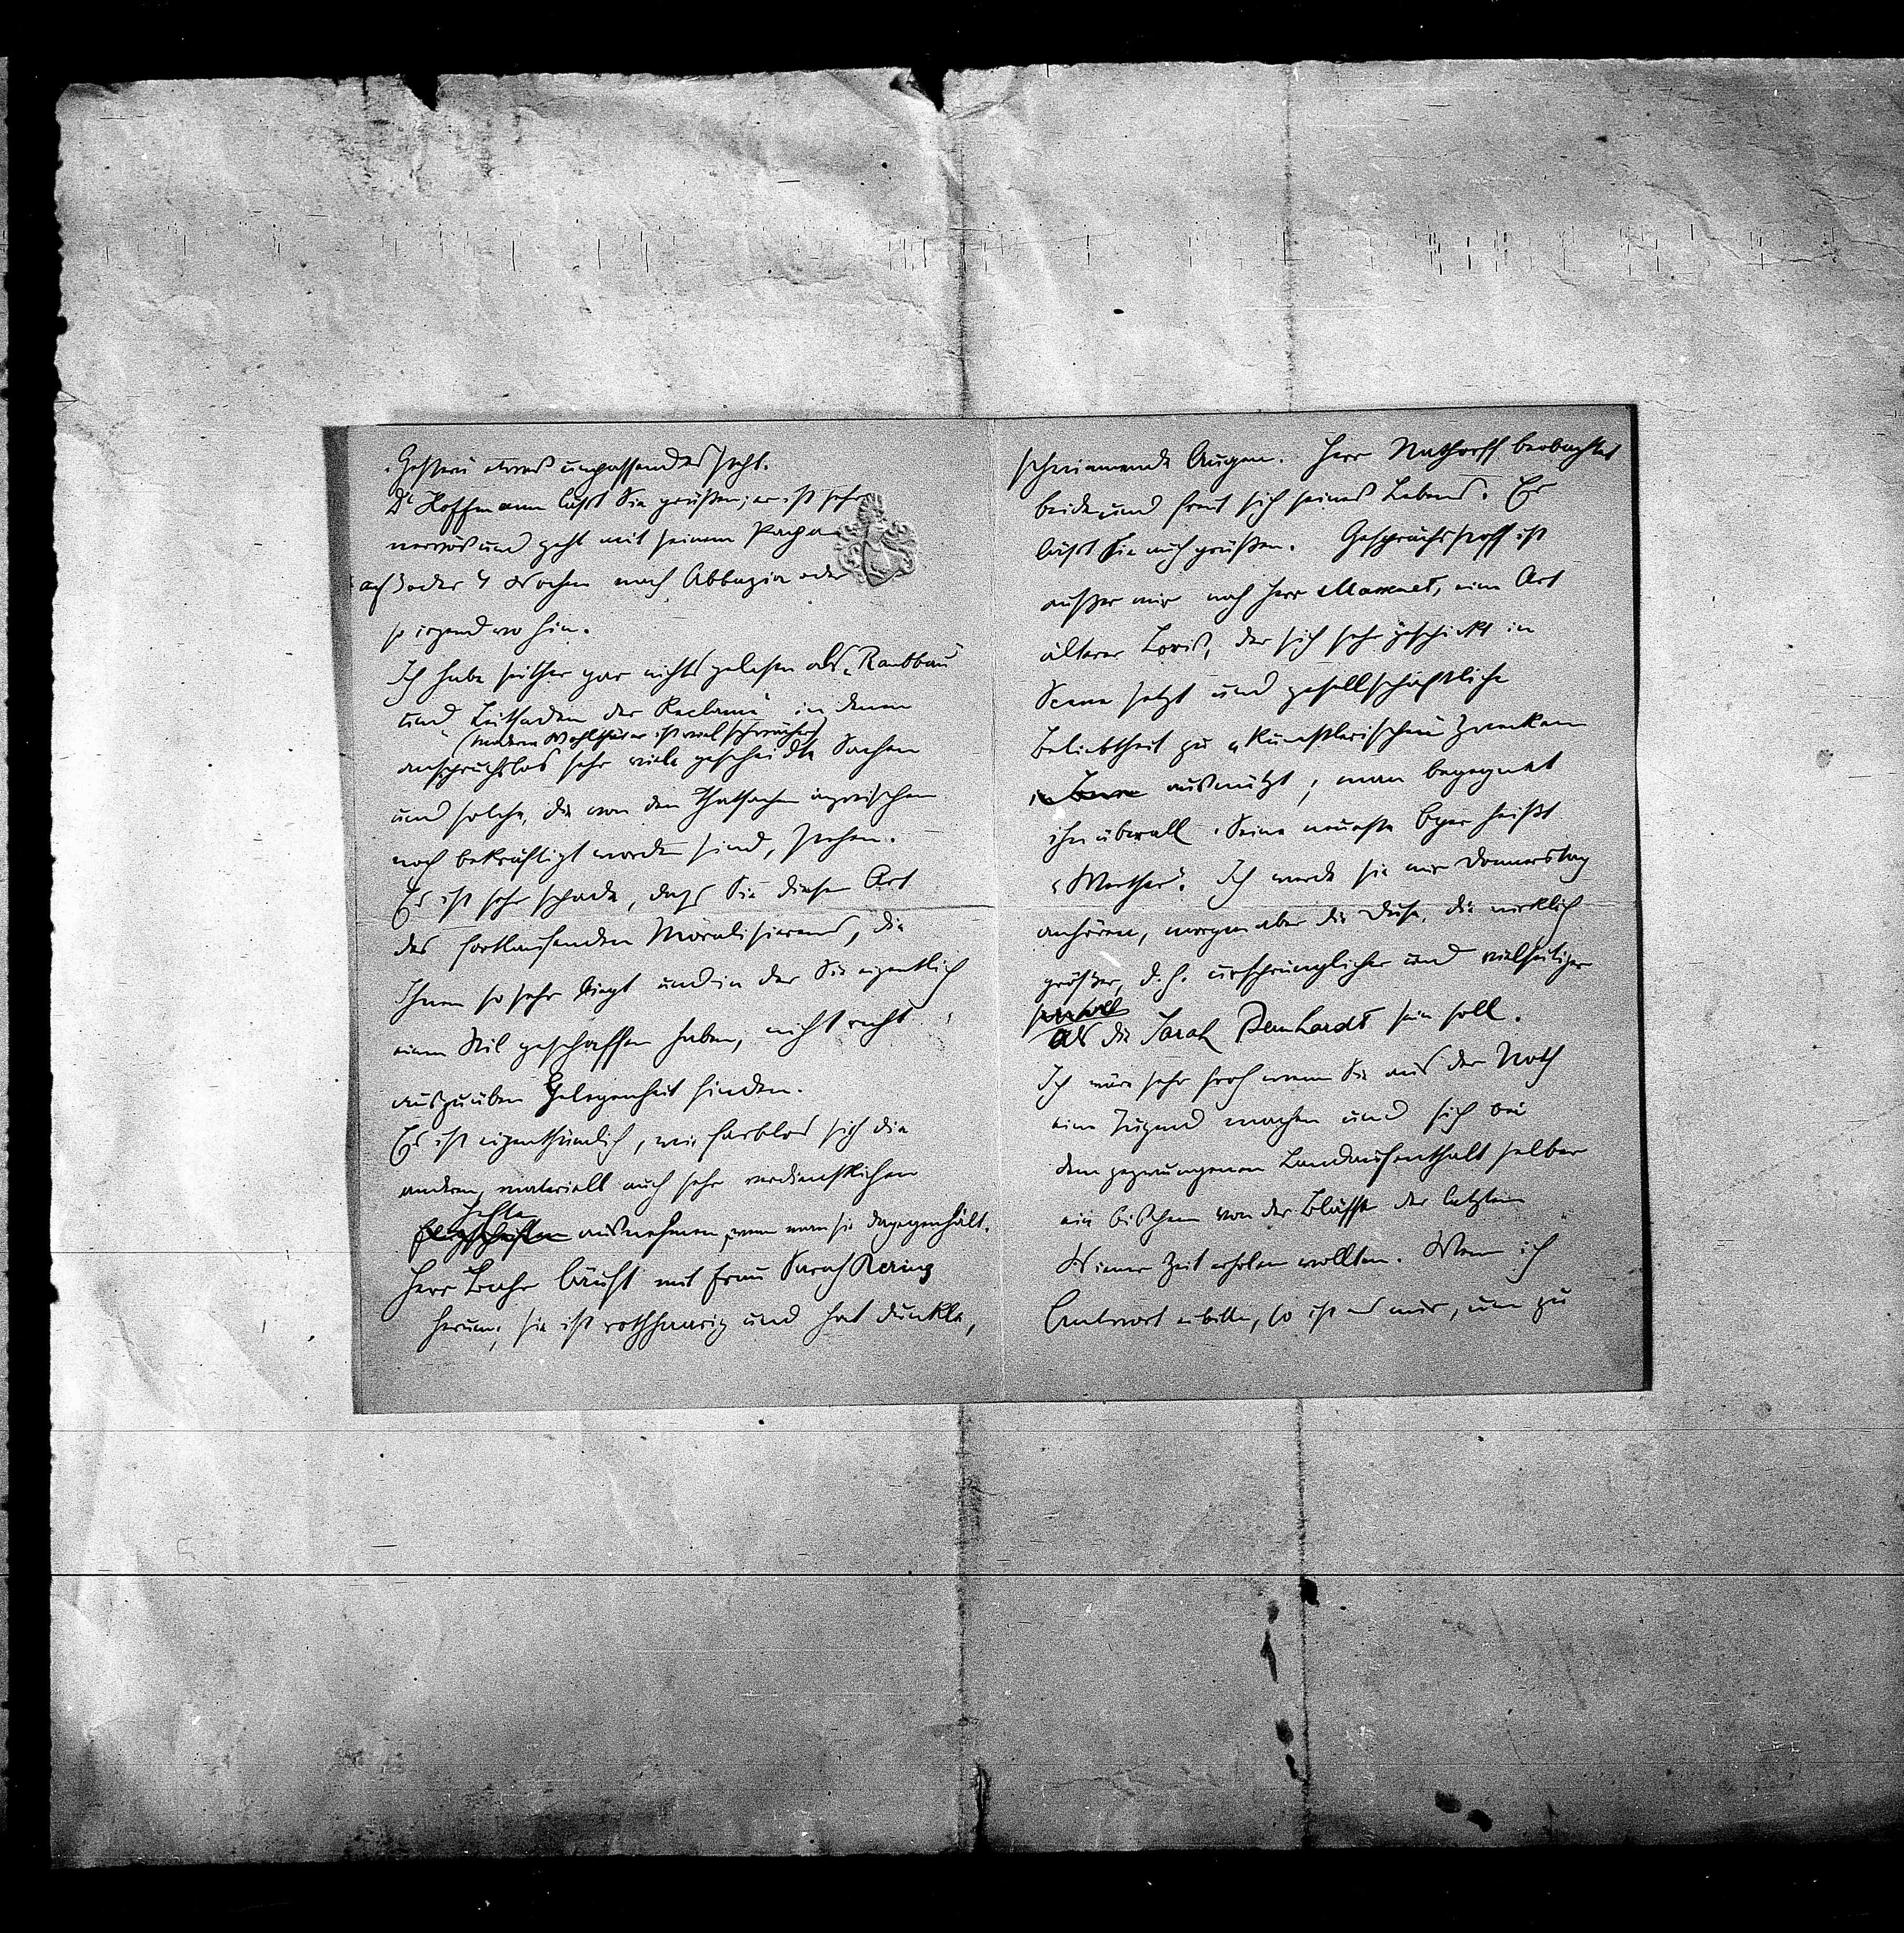 Gestern etwas unpassendes steht.
Dr Hoffmann läßt Sie grüßen; er ist sehr
nervös und geht mit seinem Papa
auf 3 oder 4 Wochen nach Abbazia oder
so irgend wo hin.
Ich habe seither gar nichts gelesen als „Raubbau“
und „Leitfaden der Reclame“ in denen
(Modern Wohlthäter ist viel schwächer)
anspruchslos sehr viele gescheidte Sachen
und solche, die von den Thatsachen inzwischen
noch bekräftigt worden sind, stehen.
Es ist sehr schade, daß Sie diese Art
des fortlaufenden Moralisierens, die
Ihnen so sehr liegt und in der Sie eigentlich
einen Stil geschaffen haben, nicht recht
auszuüben Gelegenheit finden.
Es ist eigenthümlich, wie farblos sich die
anderen, materiell auch sehr verdienstlichen
Hefte
Flugschriften ausnehmen, wenn man sie dagegenhält.
Herr Bahr läuft mit Frau Sarah
herum; sie ist rothhaarig und hat dunkle,
schwimmende Augen. Herr Nathorff beobachtet
beide und freut sich seines Lebens. Er
läßt Sie auch grüßen. Gesprächsstoff ist
außer mir noch Herr Massenet, eine Art
älterer Loris, der sich sehr geschickt in
Scene setzt und gesellschaftliche
Beliebtheit zu „künstlerischen“ Zwecken
ausnützt; man begegnet
ihn überall. Seine neueste Oper heißt
„Werther“. Ich werde sie mir Donnerstag
anhören, morgen aber die Duse, die wirklich
größer, d. h. ursprünglicher und vielseitiger
sein soll
als die Sarah Bernhardt sein soll.
Ich wäre sehr froh wenn Sie aus der Noth
eine Tugend machen und sich bei
dem gezwungenen Landaufenthalt selber
ein bischen von der Blässe der letzten
Wiener Zeit erholen wollten. Wenn ich
Antwort erbitte, so ist es nur, um zu